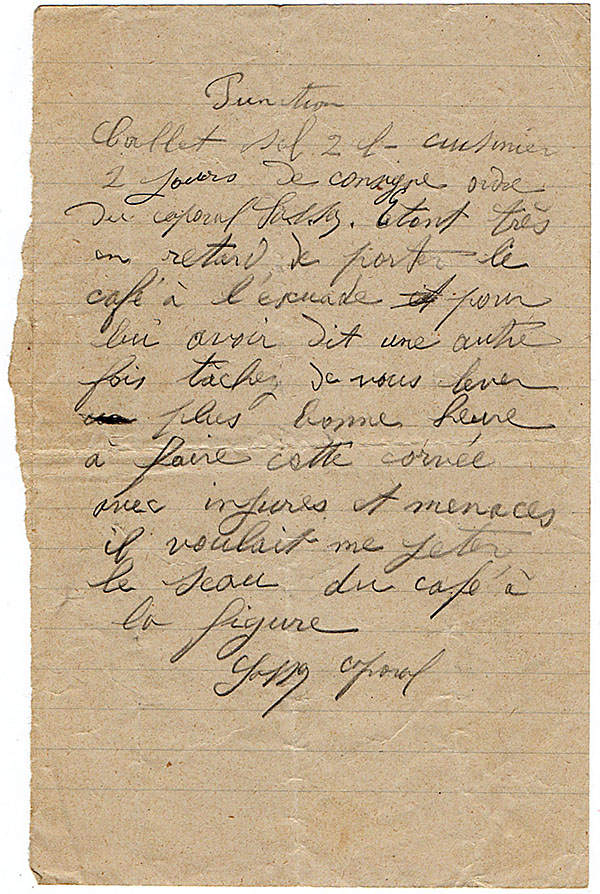 Punition
Collet sol 2 cl - cuisinier
2 jours de consigne ordre
du caporal. Etant très
en retard de porter le
café à l'escuade et pour
lui avoir dit une autre
fois tachez de vous lever
plus bonne heure
à faire cette corvée
avec injures et menaces
il voulait me jeter
le seau du café à
la figure
caporal